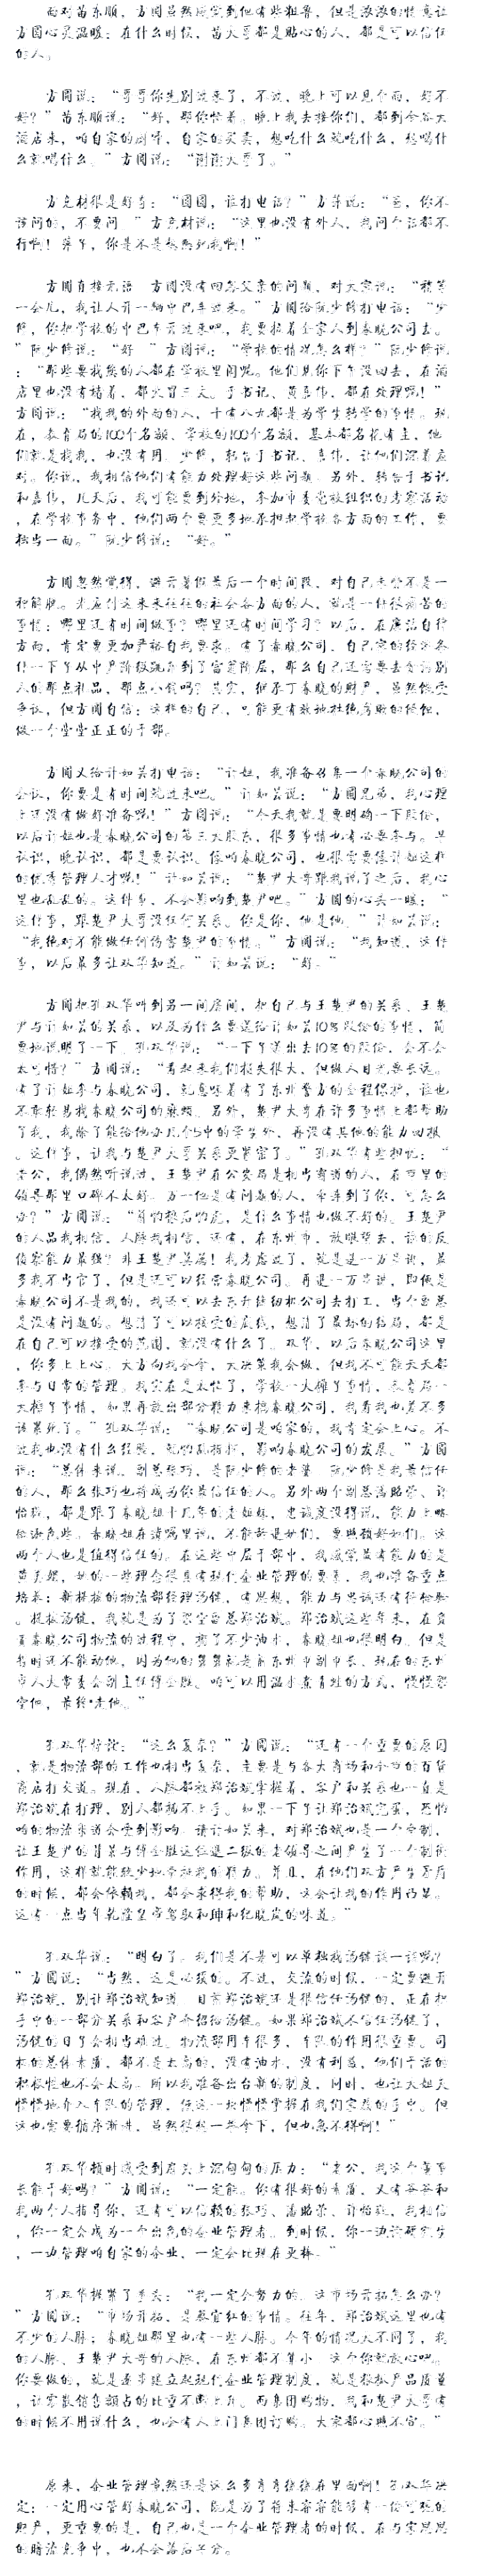 面对苗东顺，方圆虽然感觉到他有些粗鲁，但是浓浓的情意让
方圆心灵温暖：在什么时候，苗大哥都是贴心的人，都是可以信任
的人。
方圆说：“哥哥你先别过来了，不过，晚上可以见个面，好不
好？”苗东顺说：“好，那你忙着。晚上我去接你们，都到金谷大
酒店来，咱自家的厨师，自家的买卖，想吃什么就吃什么，想喝什
么就喝什么。”方圆说：“谢谢大哥了。”
方克材很是好奇：“圆圆，谁打电话？”方萍说：“爸，你不
该问的，不要问。”方克材说：“这里也没有外人，我问个话都不
行啊！萍子，你是不是想熙死我啊！”
方圆直接无语。方圆没有回答父亲的问题，对大家说：“稍等
一会儿，我让人开一辆中巴车过来。”方圆给阮少修打电话：“少
修，你把学校的中巴车开过来吧，我要拉着全家人到春晓公司去。
”阮少修说：“好。”方圆说：“学校的情况怎么样？”阮少修说
：“那些要找您的人都在学校里闹呢。他们见你下午没回去，在酒
店里也没有堵着，都火冒三丈。于书记、黄嘉伟，都在处理呢！”
方圆说：“找我的外面的人，十有八九都是为学生转学的事情。现
在，教育局的100个名额、学校的100个名额，基本都名花有主，他
们就是找我，也没有用。少修，转告于书记、嘉伟，让他们沉着应
对。你说，我相信他们有能力处理好这些问题。另外，转告于书记
和嘉伟，几天后，我可能要到外地，参加市委党校组织的考察活动
，在学校事务中，他们两个要更多地承担起学校各方面的工作，要
独当一面。”阮少修说：“好。”
方圆忽然觉得，避开暑假最后一个时间段，对自己未尝不是一
种解脱。光应付这来来往往的社会各方面的人，就是一件很痛苦的
事情：哪里还有时间做事？哪里还有时间学习？以后，在廉洁自律
方面，肯定要更加严格自我要求。有了春晓公司，自己家的经济条
件一下子从中产阶级跳升到了富裕阶层，那么自己还需要去贪污别
人的那点礼品，那点小钱吗？其实，继承了春晓的财产，虽然饱受
争议，但方圆自信：这样的自己，可能更有效地杜绝腐败的侵蚀，
做一个堂堂正正的干部。
方圆又给计如芸打电话：“计姐，我准备召集一个春晓公司的
会议，你要是有时间就过来吧。”计如芸说：“方圆兄弟，我心理
上还没有做好准备呢！”方圆说：“今天我就是要明确一下股份，
以后计姐也是春晓公司的第三大股东，很多事情也有必要参与。早
认识，晚认识，都是要认识。像咱春晓公司，也很需要像计姐这样
的优秀管理人才呢！”计如芸说：“楚尹大哥跟我说了之后，我心
里也乱乱的。这件事，不会影响到楚尹吧。”方圆的心头一暖：“
这件事，跟楚尹大哥没任何关系。你是你，他是他。”计如芸说：
“我绝对不能做任何伤害楚尹的事情。”方圆说：“我知道，这件
事，以后最多让双华知道。”计如芸说：“好。”
方圆把孔双华叫到另一间房间，把自己与王楚尹的关系、王楚
尹与计如芸的关系，以及为什么要送给计如芸10%股份的事情，简
要地说明了一下。孔双华说：“一下子送出去10%的股份，会不会
太可惜？”方圆说：“看起来我们损失很大，但做人目光要长远。
有了计姐参与春晓公司，就意味着有了东州警方的全程保护，谁也
不敢轻易找春晓公司的麻烦。另外，楚尹大哥在许多事情上都帮助
了我，我除了能给他办几个5中的学生外，再没有其他的能力回报
。这件事，让我与楚尹大哥关系更紧密了。”孔双华有些担忧：“
老公，我偶然听说过，王楚尹在公安局是相当霸道的人，在市里的
领导那里口碑不太好。万一他是有问题的人，牵连到了你，可怎么
办？”方圆说：“前怕狼后怕虎，是什么事情也做不好的。王楚尹
的人品我相信，人脉我相信，还有，在东州市，放眼望去，谁的反
侦察能力最强？非王楚尹莫属！我考虑过了，就是退一万步说，最
多我不当官了，但是还可以经营春晓公司。再退一万步说，即便是
春晓公司不是我的，我还可以去东升丝纺织公司去打工，当个副总
是没有问题的。想清了可以接受的底线，想清了最坏的结局，都是
在自己可以接受的范围，就没有什么了。双华，以后春晓公司这里
，你多上上心。大方向我会拿，大决策我会做，但我不可能天天都
参与日常的管理。我实在是太忙了，学校一大摊子事情，教育局一
大摊子事情，如果再放出部分精力来搞春晓公司，我看我也差不多
该累死了。”孔双华说：“春晓公司是咱家的，我肯定会上心。不
过我也没有什么经验，就怕乱指挥，影响春晓公司的发展。”方圆
说：“总体来说，副总张巧，是阮少修的老婆，阮少修是我最信任
的人，那么张巧也将成为你最信任的人。另外两个副总潘昭荣、许
怡璇，都是跟了春晓姐十几年的老姐妹，忠诚度没得说，能力上略
微逊色些。春晓姐在遗嘱里说，不能辞退她们，要照顾好她们。这
两个人也是值得信任的。在这些中层干部中，我感觉最有能力的是
黄美娜，她的一些理念很具有现代企业管理的要素，我也准备重点
培养；新提拔的物流部经理汤健，有思想，能力与忠诚还有待检验
。提拔汤健，我就是为了架空副总郑治斌。郑治斌这些年来，在负
责春晓公司物流的过程中，捞了不少油水，春晓姐也很明白。但是
当时还不能动他，因为他的舅舅就是前东州市副市长、现在的东州
市人大常委会副主任傅金胜。咱可以用温水煮青蛙的方式，慢慢架
空他，最终*走他。”
孔双华惊讶：“这么复杂？”方圆说：“还有一个重要的原因
，就是物流部的工作也相当复杂，主要是与各大商场和全市的百货
商店打交道。现在，人脉都被郑治斌掌握着，客户和关系也一直是
郑治斌在打理，别人都插不上手。如果一下子让郑治斌完蛋，恐怕
咱的物流渠道会受到影响。请计如芸来，对郑治斌也是一个牵制，
让王楚尹的背景与傅金胜这位退二线的老领导之间产生了一个制衡
作用，这样就能较少地牵扯我的精力。并且，在他们双方产生矛盾
的时候，都会依赖我，都会求得我的帮助，这会让我的作用凸显。
还有一点当年乾隆皇帝驾驭和珅和纪晓岚的味道。”
孔双华说：“明白了。我们是不是可以单独找汤健谈一谈呢？
”方圆说：“当然，这是必须的。不过，交流的时候，一定要避开
郑治斌，别让郑治斌知道。目前郑治斌还是很信任汤健的，正在把
手中的一部分关系和客户介绍给汤健。如果郑治斌不信任汤健了，
汤健的日子会相当难过。物流部用车很多，车队的作用很重要。司
机的总体素质，都不是太高的，没有油水，没有利益，他们干活的
积极性也不会太高。所以我准备出台新的制度，同时，也让大姐夫
慢慢地介入车队的管理，使这一块慢慢掌握在我们家族的手中。但
这也需要循序渐进，虽然很想一蹴而下，但也急不得啊！”
孔双华顿时感受到肩头上沉甸甸的压力：“老公，我这个董事
长能干好吗？”方圆说：“一定能。你有很好的素质，又有爸爸和
我两个人指导你，还有可以信赖的张巧、潘昭荣、许怡璇，我相信
，你一定会成为一个出色的企业管理者。到时候，你一边读研究生
，一边管理咱自家的企业，一定会比现在更棒。”
孔双华握紧了拳头：“我一定会努力的。这市场开拓怎么办？
”方圆说：“市场开拓，是蔡宜红的事情。往年，郑治斌这里也有
不少的人脉；春晓姐那里也有一些人脉。今年的情况大不同了，我
的人脉、王楚尹大哥的人脉，在东州都不算小。这个你就放心吧。
你要做的，就是逐步建立起现代企业管理制度，就是狠抓产品质量
，让零散销售额占的比重不断上升。而集团购物，我和楚尹大哥有
的时候不用说什么，也会有人上门集团订购。大家都心照不宣。”
原来，企业管理竟然还是这么多弯弯绕绕在里面啊！孔双华决
定：一定用心管好春晓公司，既是为了将来容容能够有一份可观的
财产，更重要的是，自己也是一个企业管理者的时候，在与宋思思
的暗流竞争中，也不会落后半分。